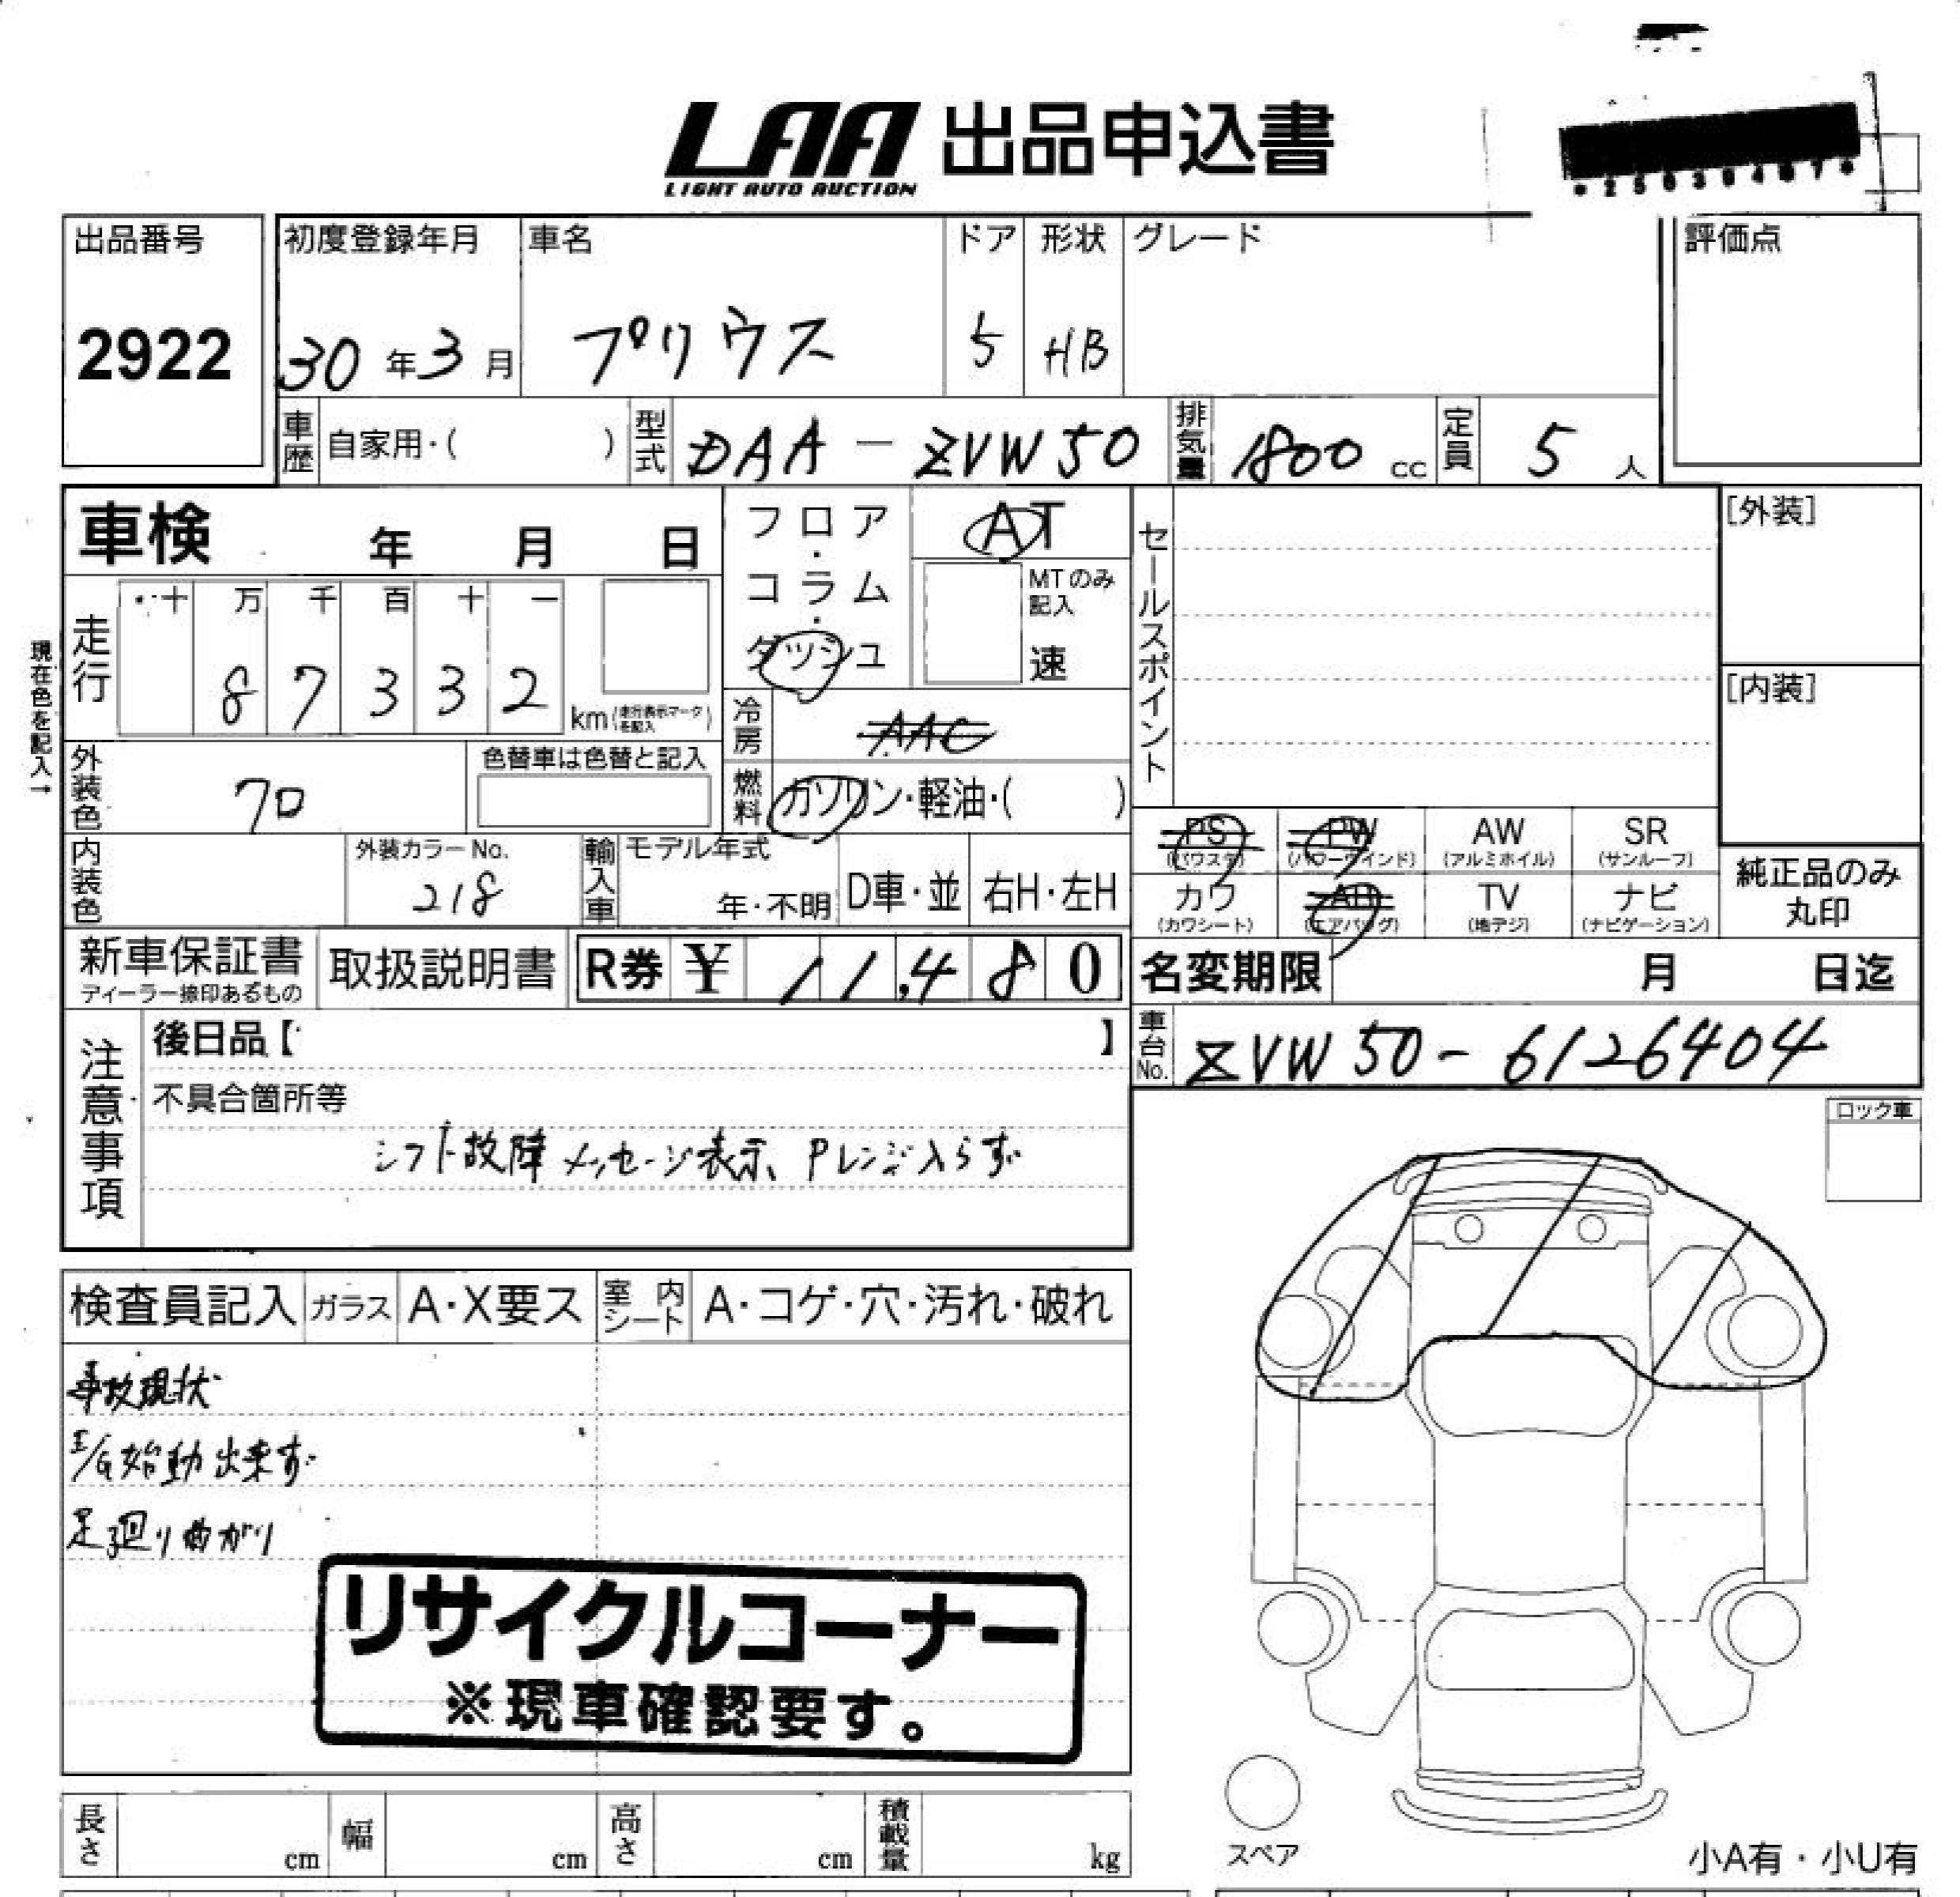 LAA 出品申込書
LIGHT AUTO AUCTION
出品番号
2922
初度登録年月
30年3月
車名
プリウス
ドア
5
形状
HB
グレード
評価点
車歴 自家用・( )
型式 DAA-ZVW50
排気量 1800 cc
定員 5 人
車検 年 月 日
走行
十 万 千 百 十 一
8 7 3 3 2
km(走行表示マークを記入)
現在色を記入→
外装色 クロ
色替車は色替と記入
内装色
外装カラーNo.
218
輸入車
モデル年式
年・不明
D車・並
右H・左H
フロア・コラム・ダッシュ
AT
MTのみ記入
速
冷房 AAC
燃料 ガソリン・軽油・( )
セールスポイント
[外装]
[内装]
PS (パワステ)
PW (パワーウインド)
AW (アルミホイル)
SR (サンルーフ)
カワ (カワシート)
AB (エアバッグ)
TV (地デジ)
ナビ (ナビゲーション)
純正品のみ
丸印
新車保証書
ディーラー捺印あるもの
取扱説明書
R券 ¥ 11,480
名変期限 月 日迄
車台No. ZVW50-6126404
注意事項
後日品【 】
不具合箇所等
シフト故障メッセージ表示、Pレンジ入らず
ロック車
検査員記入
ガラス A・X要ス
室内シート A・コゲ・穴・汚れ・破れ
事故現状
E/G始動出来ず
足廻り曲がり
リサイクルコーナー
※現車確認要す。
長さ cm
幅 cm
高さ cm
積載量 kg
スペア
小A有・小U有